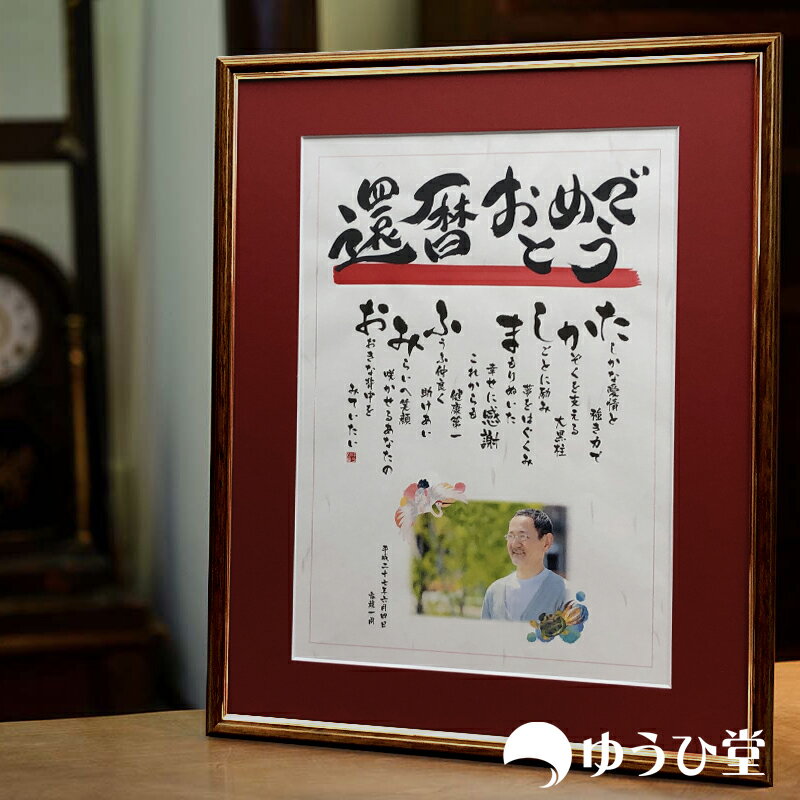 還暦おめでとう
たしかな愛情と
強き力で
かぞくを支える
大黒柱
しごとに励み
夢をはぐくみ
まもりぬいた
幸せに感謝
これからも
健康第一
ふうふ仲良く
助けあい
みらいへ笑顔
咲かせるあなたの
おおきな背中を
みていたい
平成二十七年六月四日
家族一同
ゆうひ堂